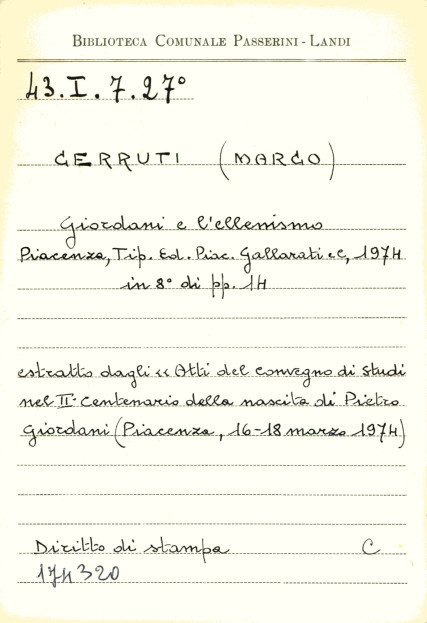 BIBLIOTECA COMUNALE PASSERINI - LANDI
43.I.7.27°
CERRUTI (MARCO)
Giordani e l'ellenismo
Piacenza, Tip. Ed. Piac. Gallarati e C, 1974
in 8° di pp. 14
estratto dagli << Atti del convegno di studi
nel II° Centenario della nascita di Pietro
Giordani (Piacenza, 16-18 marzo 1974)
Diritto di stampa C
174320